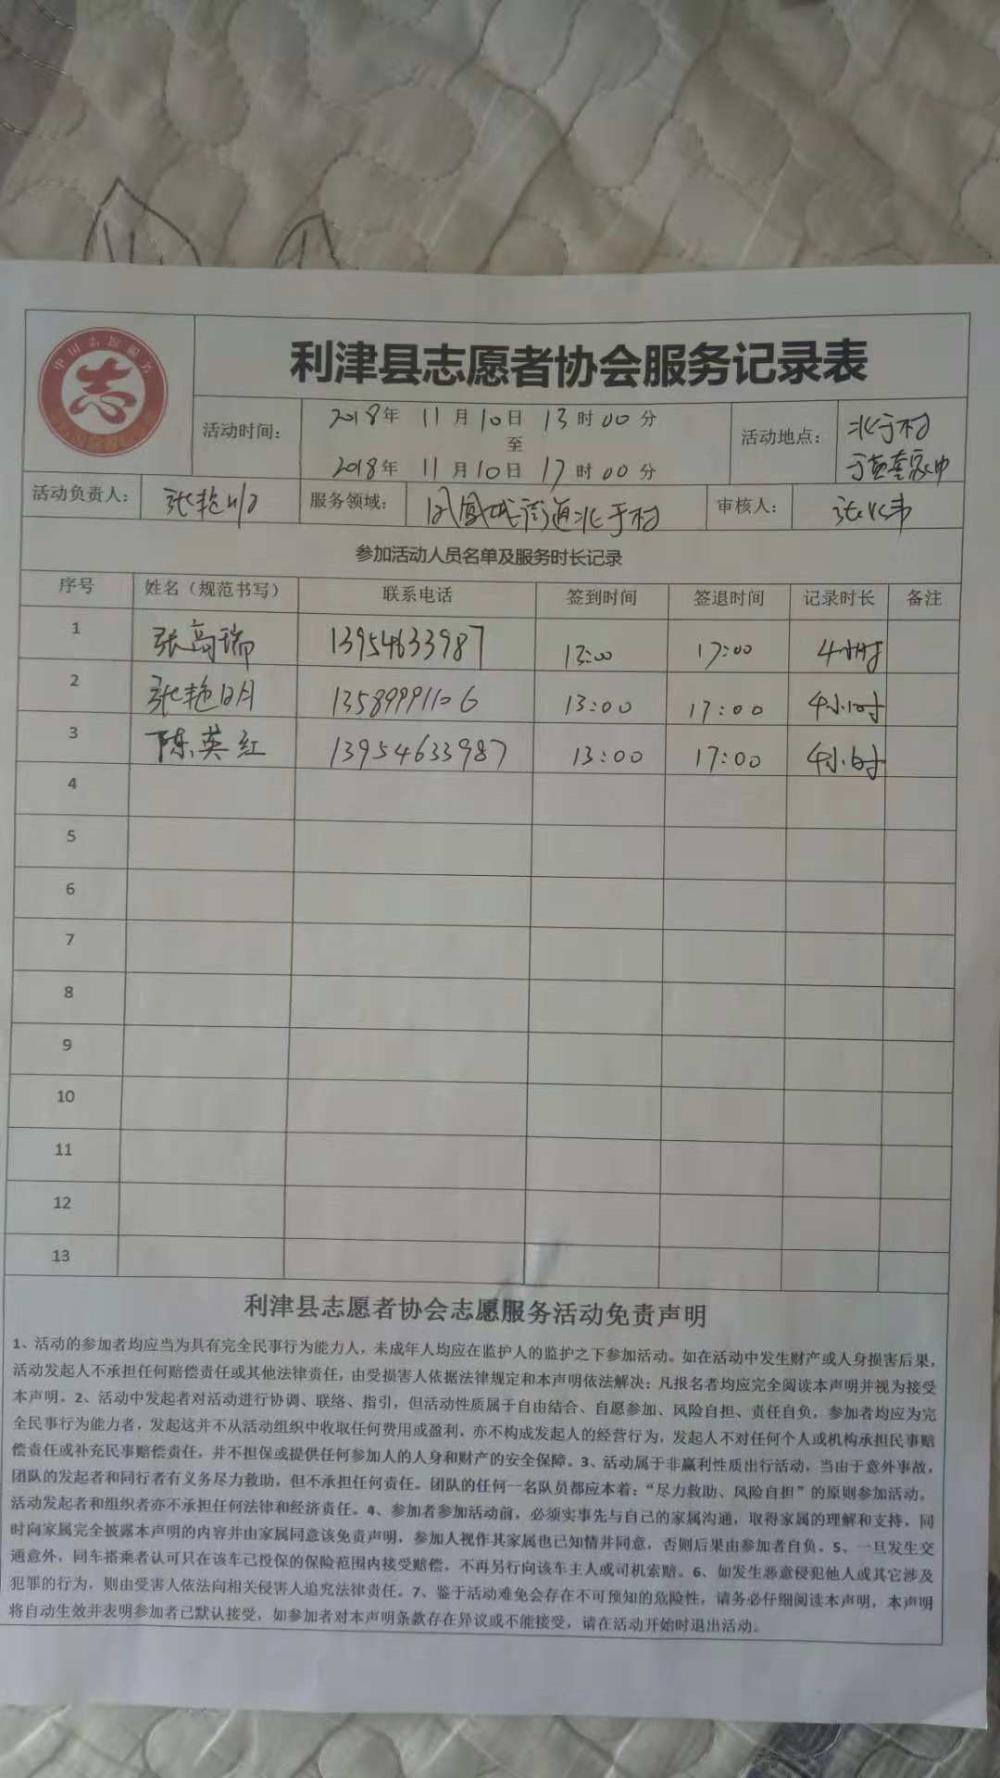 中国志愿服务
志
利津县志愿者协会服务记录表
活动时间： 2018年 11月10日 13时00分
至
2018年 11月10日 17时00分
活动地点： 北于村
家中
活动负责人： 张艳 服务领域： 凤凰城街道北于村 审核人：
参加活动人员名单及服务时长记录
序号 姓名（规范书写） 联系电话 签到时间 签退时间 记录时长 备注
1 张高瑞 13954633987 13:00 17:00 4小时
2 张艳明 13589991106 13:00 17:00 4小时
3 陈英红 13954633987 13:00 17:00 4小时
4
5
6
7
8
9
10
11
12
13
利津县志愿者协会志愿服务活动免责声明
1、活动的参加者均应当为具有完全民事行为能力人，未成年人均应在监护人的监护之下参加活动。如在活动中发生财产或人身损害后果，
活动发起人不承担任何赔偿责任或其他法律责任，由受损害人依据法律规定和本声明依法解决；凡报名者均应完全阅读本声明并视为接受
本声明。2、活动中发起者对活动进行协调、联络、指引，但活动性质属于自由结合、自愿参加、风险自担、责任自负，参加者均应为完
全民事行为能力者，发起这并不从活动组织中收取任何费用或盈利，亦不构成发起人的经营行为，发起人不对任何个人或机构承担民事赔
偿责任或补充民事赔偿责任，并不担保或提供任何参加人的人身和财产的安全保障。3、活动属于非赢利性质出行活动，当由于意外事故，
团队的发起者和同行者有义务尽力救助，但不承担任何责任。团队的任何一名队员都应本着：“尽力救助、风险自担”的原则参加活动。
活动发起者和组织者亦不承担任何法律和经济责任。4、参加者参加活动前，必须实事先与自己的家属沟通，取得家属的理解和支持，同
时向家属完全披露本声明的内容并由家属同意该免责声明，参加人视作其家属也已知情并同意，否则后果由参加者自负。5、一旦发生交
通意外，同车搭乘者认可只在该车已投保的保险范围内接受赔偿，不再另行向该车主人或司机索赔。6、如发生恶意侵犯他人或其它涉及
犯罪的行为，则由受害人依法向相关侵害人追究法律责任。7、鉴于活动难免会存在不可预知的危险性，请务必仔细阅读本声明，本声明
将自动生效并表明参加者已默认接受，如参加者对本声明条款存在异议或不能接受，请在活动开始时退出活动。